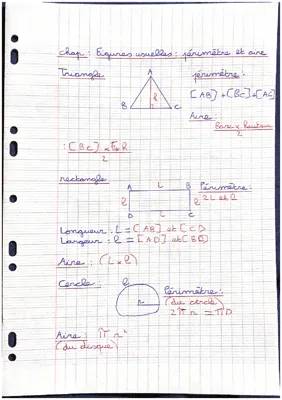 chap : Figures usuelles : périmètre et aire
Triangle
périmètre :
A
h
B
C
[AB] + [BC] + [AC]
Aire :
Base x Hauteur
2
: [BC] x
2
rectangle
A L B
l l
D L C
Périmètre :
2L et 2
Longueur : L = [AB] et [CD
Largeur : l = [AD] et [BC]
Aire : (L x l)
Cercle :
r
Périmètre :
(du cercle)
2 π r = π D
Aire : π r²
(du disque)